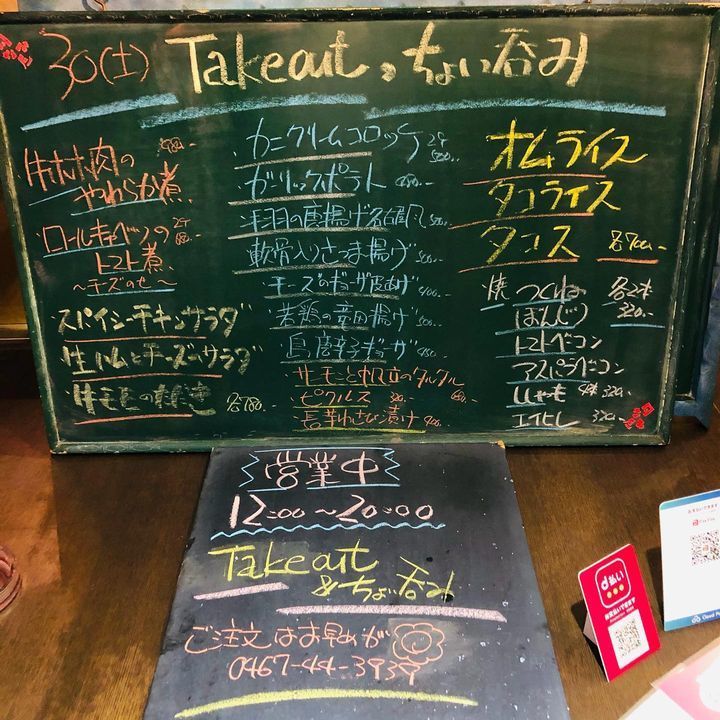 30(土) Takeout & ちょい呑み
牛ホホ肉の
やわらか煮
ロールキャベツの 2ヶ
トマト煮
～チーズのせ～
スパイシーチキンサラダ
生ハムとチーズのサラダ
各780.-
カニクリームコロッケ 2ヶ 500.-
ガーリックポテト 450.-
手羽の唐揚げ名古屋風 500.-
軟骨入りさつま揚げ 500.-
チーズのギョーザ皮あげ 400.-
若鶏の竜田揚げ 500.-
島唐辛子ギョーザ 450.-
生モンと帆立のタルタル
ピクルス 300.-
長芋わさび漬け 400.-
オムライス
タコライス
タコス 各700.-
焼 つくね 各2本
ぼんじり 320.-
トマトベーコン
アスパラベーコン
ししゃも 4本 320.-
エイヒレ 320.-
営業中
12:00～20:00
Takeout
&ちょい呑み
ご注文はお早めが
0467-44-3939
d払い
PayPay